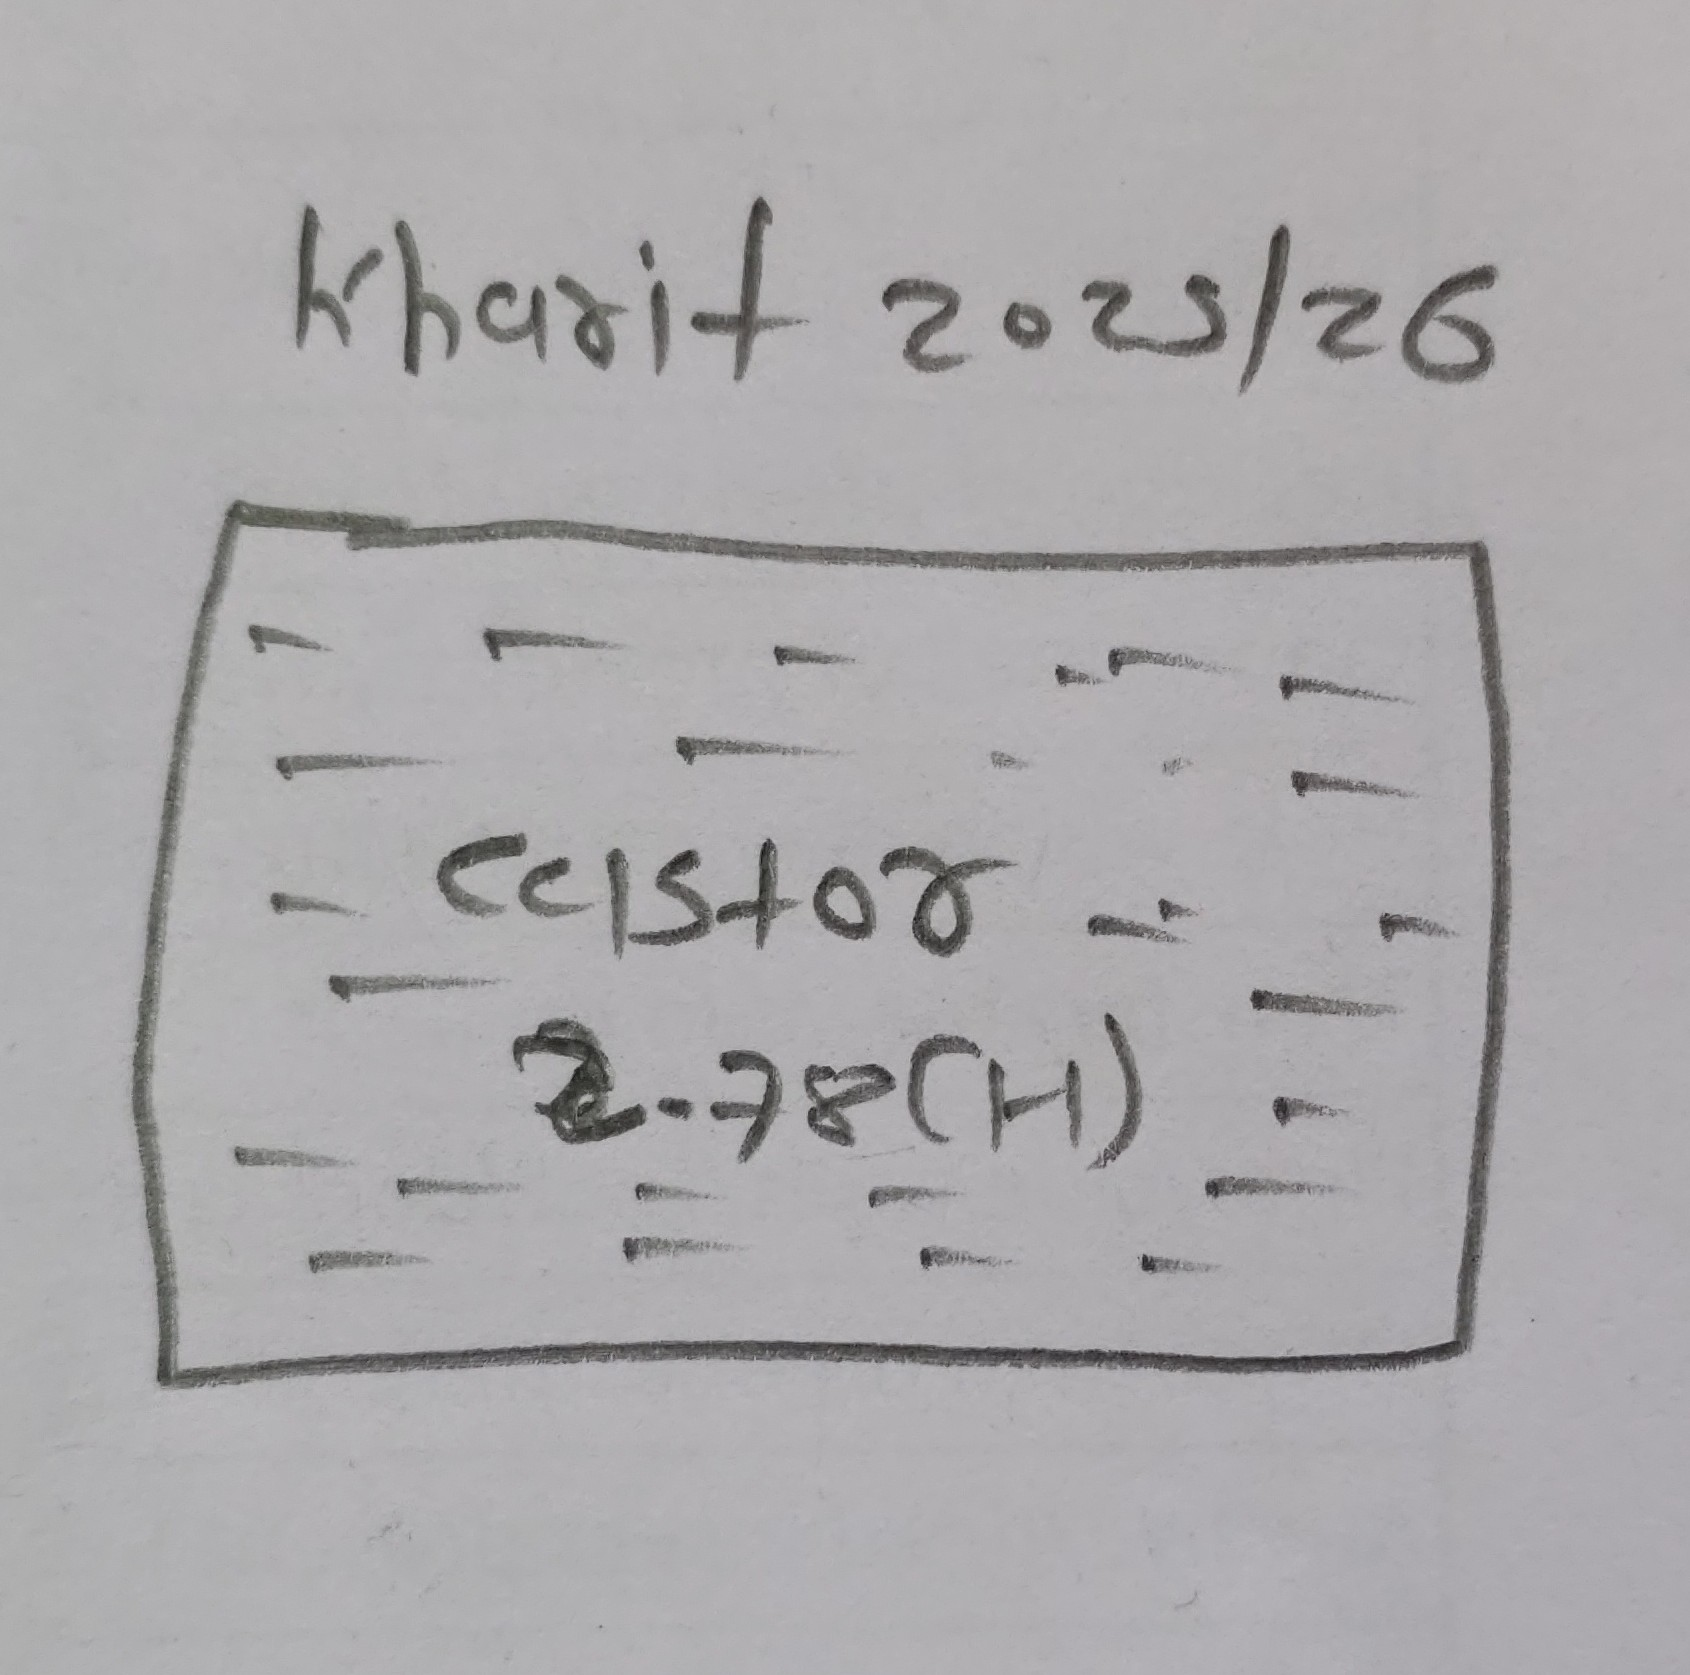 Kharif 2025/26
Castor
2.78(H)